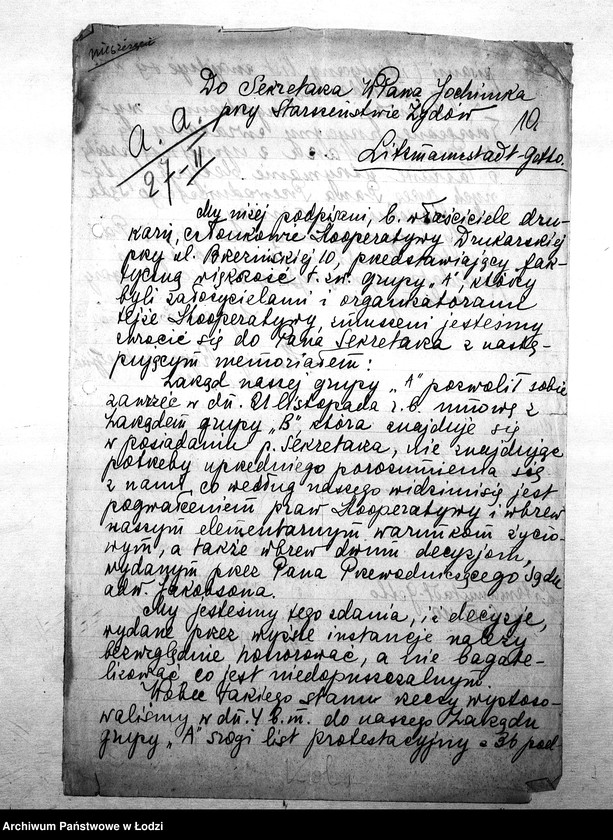 Do Sekretarza WPana Jochimka
przy Starszeństwie Żydów
10.
A. A.
27-II
Litzmannstadt-Getto.
My niżej podpisani, b. właściciele dru-
karń, członkowie Kooperatywy Drukarskiej
przy ul. Brzezińskiej 10, przedstawiający fak-
tyczną większość t. zw. grupy „A", którzy
byli założycielami i organizatorami
tejże Kooperatywy, zmuszeni jesteśmy
zwrócić się do Pana Sekretarza z nastę-
pującym memoriałem:
Zarząd naszej grupy „A" pozwolił sobie
zawrzeć w dn. 21 listopada r. b. umowę z
Zarządem grupy „B" która znajduje się
w posiadaniu p. Sekretarza, nie znajdując
potrzeby uprzedniego porozumienia się
z nami, co według naszego widzimisię jest
pogwałceniem praw Kooperatywy i wbrew
naszym elementarnym warunkom życio-
wym, a także wbrew dwum decyzjom,
wydanym przez Pana Przewodniczącego Sądu
adw. Jakobsona.
My jesteśmy tego zdania, iż decyzje,
wydane przez wyższe instancje należy
bezwzględnie honorować, a nie bagate-
lizować, co jest niedopuszczalnym.
Wobec takiego stanu rzeczy wystoso-
waliśmy w dn. 4 b. m. do naszego Zarządu
grupy „A" srogi list protestacyjny o 36 pod-
Archiwum Państwowe w Łodzi